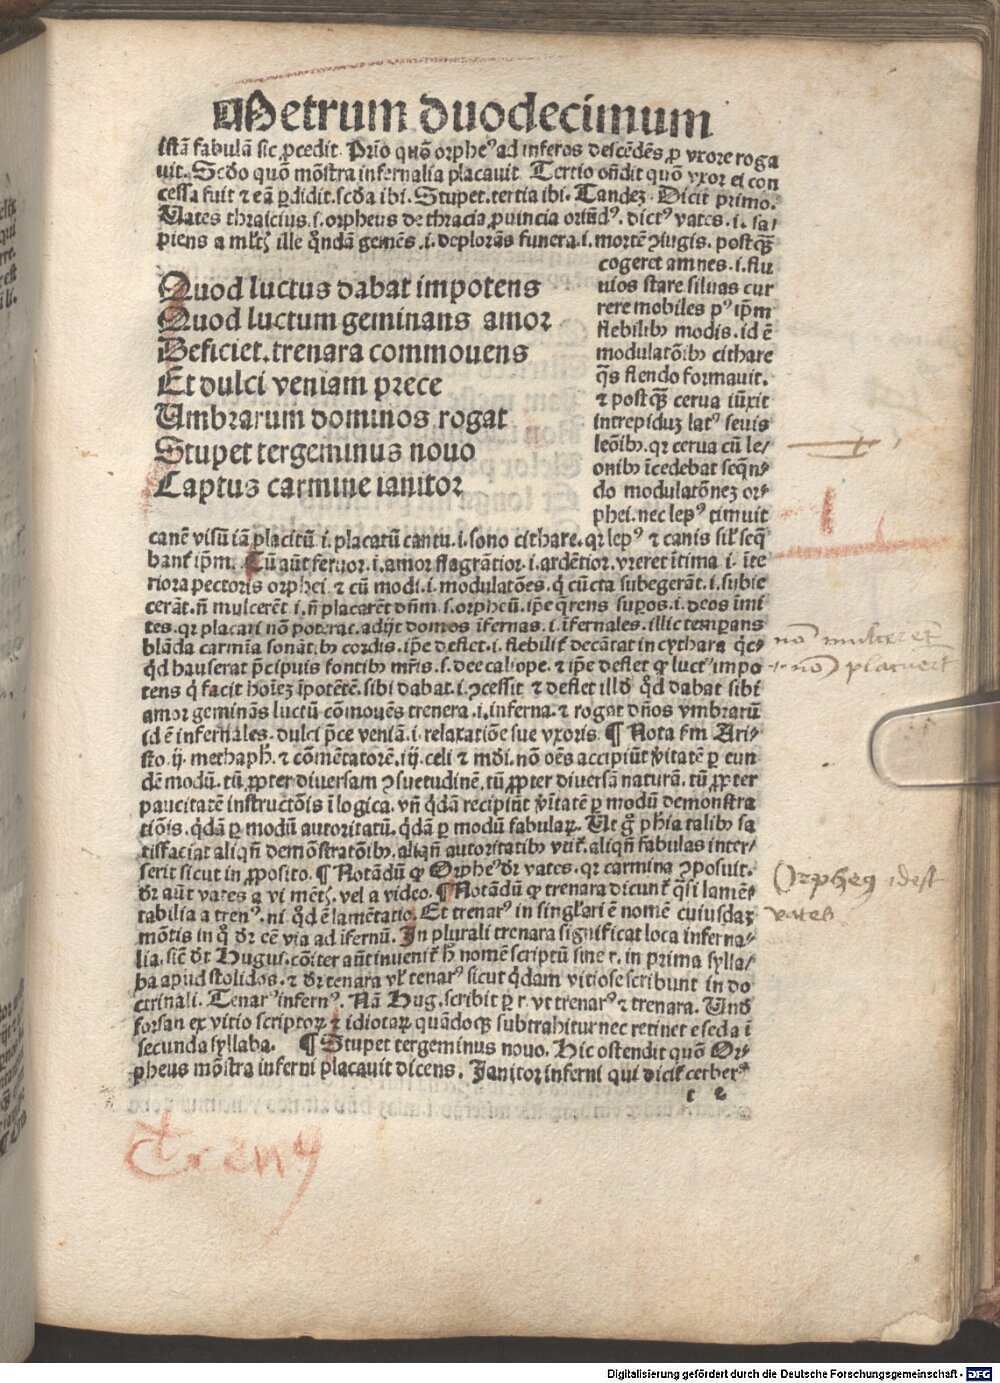 Metrum duodecimum
istā fabulā sic ꝓcedit. Prīo quō orpheꝰ ad inferos descēdēs ꝓ vxore roga
uit. Scđo quō mōstra infernalia placauit. Tertio oñdit quō vxor ei con
cessa fuit ⁊ eā ꝑdidit. scđa ibi. Stupet. tertia ibi. Tandez. Dicit primo.
Uates thraicius .i. orpheus de thracia ꝓuincia oriūdꝰ. dictꝰ vates .i. sa/
piens a ille qͦndā gemēs .i. deplorās funera .i. mortē ꝯiugis. postqꝫ
cogeret amnes .i. flu
uios stare siluas cur
rere mobiles pꝰ ip̄m
flebilibꝫ modis. id ē
modulatōibꝫ cithare
qͥs flendo formauit.
⁊ postqꝫ cerua iūxit
intrepiduꝫ latꝰ seuis
leōibꝫ. qꝛ cerua cū le/
onibꝫ īcedebat seqͣn⸗
do modulatōnez or⸗
phei. nec lepꝰ timuit
Quod luctus dabat impotens
Quod luctum geminans amor
Deficiet. trenara commouens
Et dulci veniam prece
Umbrarum dominos rogat
Stupet tergeminus nouo
Captus carmine ianitor
canē visū iā placitū .i. placatū cantu .i. sono cithare. qꝛ lepꝰ ⁊ canis sil̄ seq̄
banť ip̄m. Cū aūt feruor .i. amor flagrātior .i. ardētior. vreret ītima .i. īte
riora pectoris orphei ⁊ cū modi .i. modulatōes. q̄ cūcta subegerāt .i. subie
cerāt. nō mulcerēt .i. nō placarēt dn̄m .s. orpheū. ip̄e q̄rens suꝑos .i. deos īmi
tes. qꝛ placari nō poterāt. adijt domos īfernas .i. īfernales. illic temꝑans
blāda carmīa sonātibꝫ cordis. ip̄e deflet .i. flebiliť decātat in cythara q̄c⸗
qͥd hauserat p̄cipuis fontibꝫ mr̄is .s. dee caliope. ⁊ ip̄e deflet ꝙ luctꝰ impo
tens q̄ facit hoīez īpotētē. sibi dabat .i. ꝯcessit ⁊ deflet illđ qͦd dabat sibi
amor geminās luctū cōmouēs trenera .i. inferna. ⁊ rogat dn̄os vmbrarū
id ē infernales. dulci p̄ce veniā .i. relaxatiōe sue vxoris. ¶ Nota fm̄ Ari⸗
sto .ij. methaph̄. ⁊ cōmētatorē .iij. celi ⁊ mđi. nō oēs accipiūt v̄itatē ꝑ eun
dē modū. tū ꝓpter diuersam ꝯsuetudinē. tū ꝓpter diuersā naturā. tū ꝓpter
paucitatē instructōis ī logica. vn̄ qͥdā recipiūt v̄itatē ꝑ modū demonstra
tiōis. qͥdā ꝑ modū autoritatū. qͥdā ꝑ modū fabulaꝝ. Ut gͦ ph̄ia talibꝫ sa
tisfaciat aliqn̄ demōstratōibꝫ. aliqn̄ autoritatibꝫ vtiť. aliqn̄ fabulas inter⸗
serit sicut in ꝓposito. ¶ Notādū ꝙ Orpheꝰ dr̄ vates. qꝛ carmina ꝯposuit.
dr̄ aūt vates a vi mētꝭ. vel a video. ¶ Notādū ꝙ trenara dicunť qͣsi lamē⸗
tabilia a trenꝰ. ni qͦd ē lamētatio. Et trenarꝰ in singl̄ari ē nomē cuiusdaꝫ
mōtis in qͦ dr̄ eē via ad īfernū. In plurali trenara significat loca inferna⸗
lia. sic̄ dt̄ Hugui. cōiter aūt inueniť h̄ nomē scriptū sine r. in prima sylla/
ba apud stolidos. ⁊ dr̄ tenara vl̄ tenarꝰ sicut qͥdam vitiose scribunt in do
ctrinali. Tenarꝰ infernꝰ. Nā Hug. scribit ꝑ r. vt trenarꝰ ⁊ trenara. Unđ
forsan ex vitio scriptoꝝ ⁊ idiotaꝝ quādoqꝫ subtrahitur nec retinet e seda ī
secunda syllaba. ¶ Stupet tergeminus nouo. Hic ostendit quō Or⸗
pheus mōstra inferni placauit dicens. Janitor inferni qui diciť cerberꝰ
nō mulceret
.i. nō placueret
Orpheꝯ idest
vates
Treny